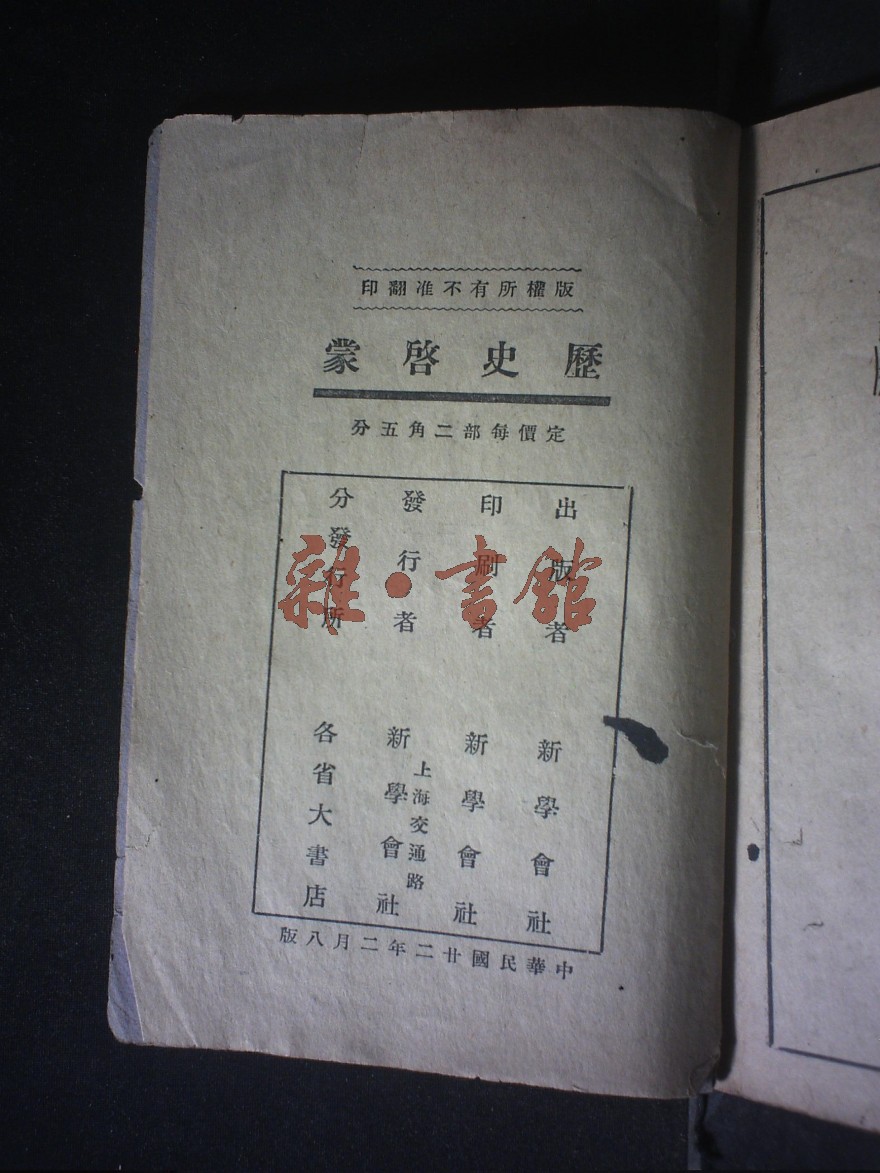 版權所有不准翻印
歷史啓蒙
定價每部二角五分
出版者 新學會社
印刷者 新學會社
發行者 上海交通路 新學會社
分發行所 各省大書店
中華民國廿二年二月八版
雜·書館